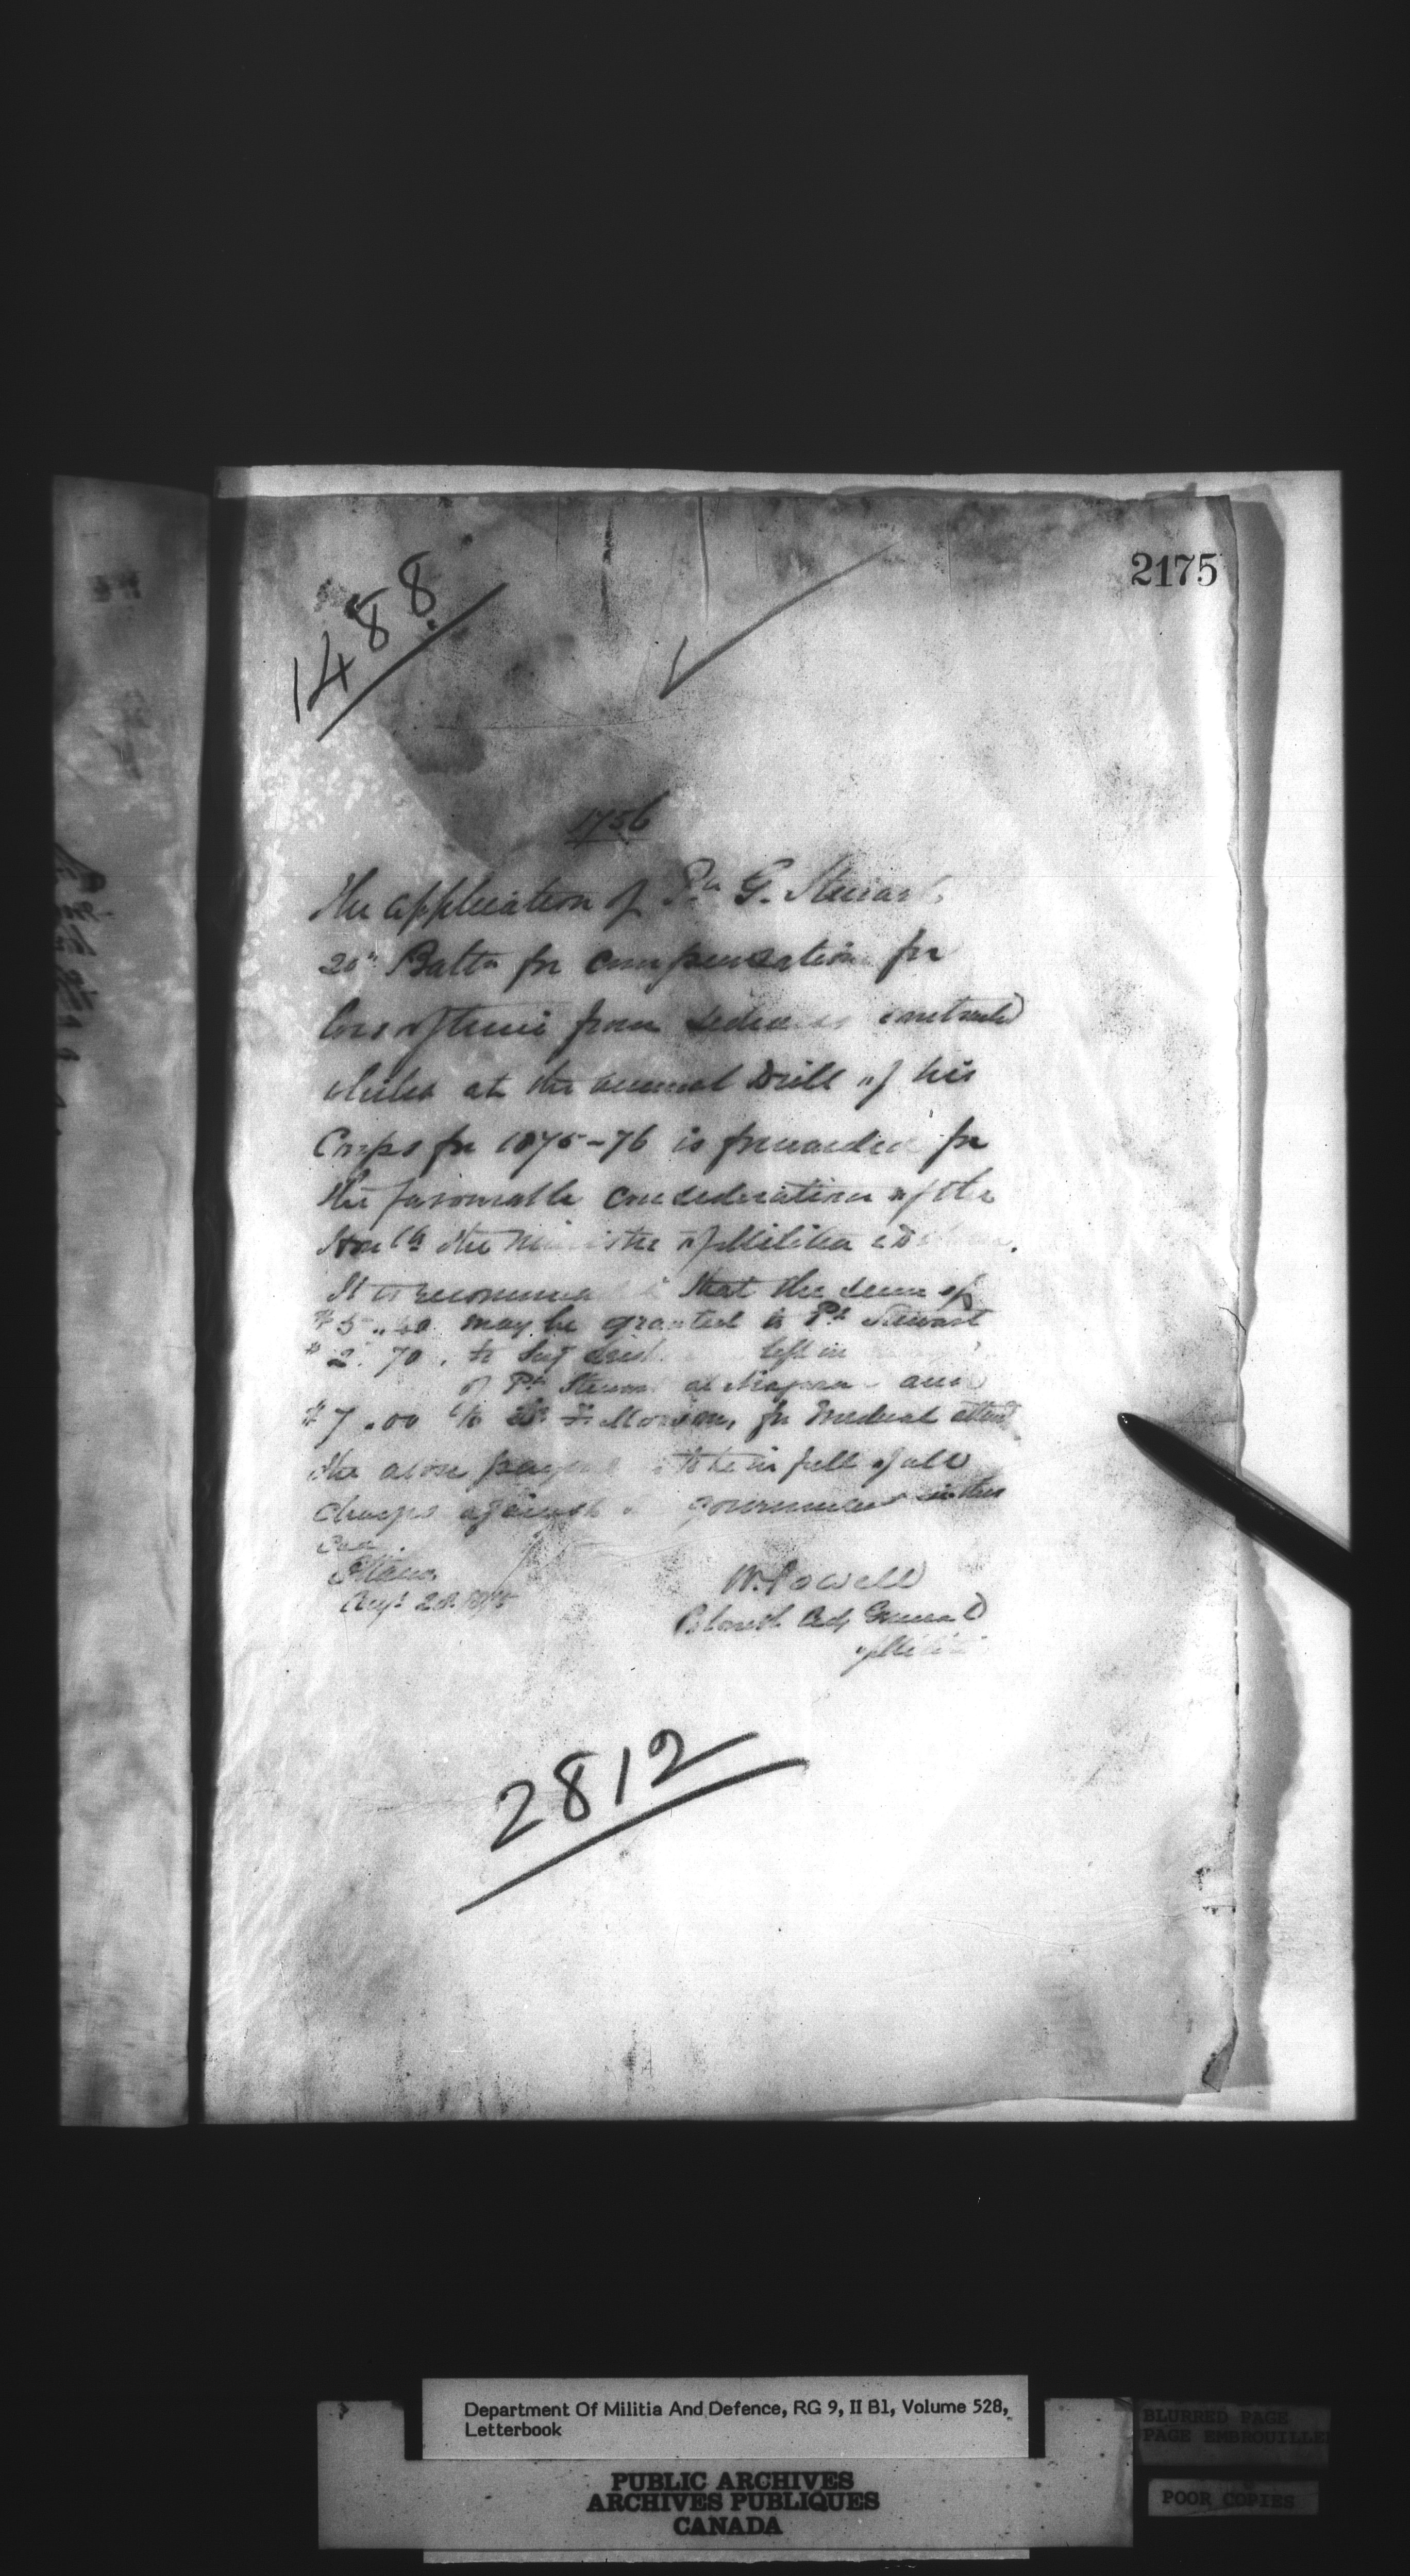 2175
1488
1756
The application of Pte G. Stewart
20th Battn for compensation for
loss of time from sickness contracted
whilst at the annual Drill of his
Corps for 1875-76 is forwarded for
the favourable consideration of the
Honble the Minister of Militia & D
It is recommended that the sum of
$5.40 may be granted to Pt Stewart
$2.70. to left in
of Pte Stewart at Niagara and
$7.00 to Dr for medical attend
the above to be in full of all
charges against government in this
case.
Ottawa
Augt 28. 1875
W. Powell
Colonel Adj General
of Militia
2812
Department Of Militia And Defence, RG 9, II B1, Volume 528,
Letterbook
BLURRED PAGE
PAGE EMBROUILLE
PUBLIC ARCHIVES
ARCHIVES PUBLIQUES
CANADA
POOR COPIES